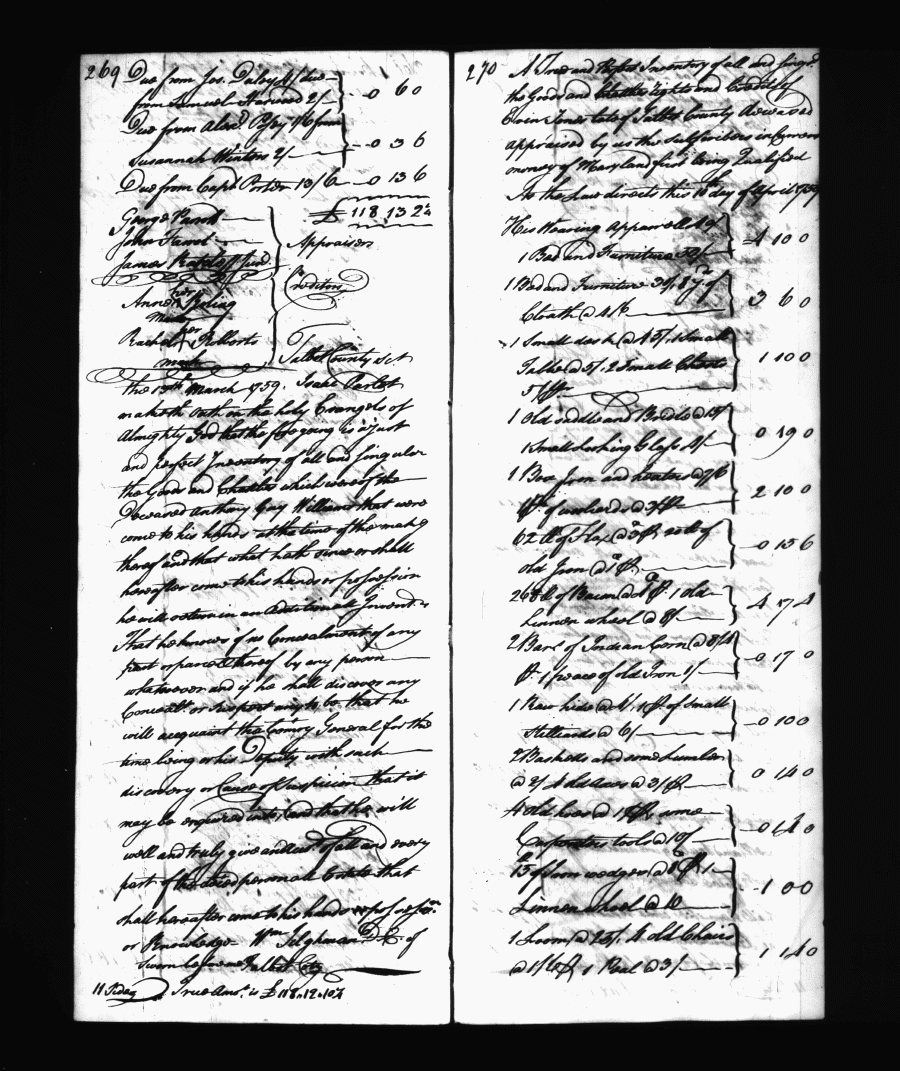 269 Due from Jos. Daley 4/ due
from Samuel Harwood 2/ - 0 6 0
Due from Alexr. 1/6 from
Susannah Winters 2/ - 0 3 6
Due from Capt. Porter 13/6 - 0 13 6
£ 118, 13 2½
George Parrott
John
James
Appraisers
Creditors
Anne her
mark
Rachel her Roberts
mark
Talbot County Sct.
the 13th March 1759. Isaac
maketh Oath on the holy Evangels of
Almighty God that the foregoing is a just
and perfect Inventory of all and singular
the Goods and Chattles which were of the
Deceased Anthony Gay Williams that were
come to his hands at the time of the makg
thereof and that what hath since or shall
hereafter come to his hands or possession
he will return in an Additional Invent.y
That he knows of no Concealment of any
part or parcel thereof by any person
whatsoever and if he shall discover any
Concealt. or suspect any to be that he
will acquaint the Comry General for the
time being or his Deputy with such
discovery or Cause of Suspicion that it
may be enquired into, and that he will
well and truly give of all and every
part of the deced personal Estate that
shall hereafter come to his hands or possessn.
or Knowledge Wm Tilghman D C of
Sworn before me Talbot Cty
11 Sides True Amt. is £ 118.12.10¼
270 A True and Perfect Inventory of all and singr.
the Goods and Chattles rights and Credits of
Evin Jones late of Talbot County deceased
appraised by us the Subscribers in Current
money of Maryland first being Qualified
As the Law directs this day of April 1759
His Wearing Apparrell
1 Bed and Furniture 50/ 4 10 0
1 Bed and Furniture 8 yds of
Cloath @ 4/6 3 6 0
1 Small desk @ 15/, 1 Small
Table @ 5/, 2 Small Chests
5/ 1 10 0
1 Old saddle and Bridle @ 15/
1 Small Looking Glass 4/ 0 19 0
1 Box Iron and heaters @
of @ 2 10 0
62 lb of Flax @ of
old Iron @ - 0 15 6
268 lb of Bacon @ 1 old
Linnen wheel @ 8/ 4 17 4
2 Barl. of Indian Corn @
1 peace of old Iron 1/ - 0 17 0
1 Raw hide @ 4/. 1 pr. of Small
Stilliards @ 6/ - 0 10 0
2 Baskets and some Lumber
@ 2/ 4 old Axes @ 3/ 0 14 0
4 old hoes @ some
Carpenters tools @ 10/
15 lb of Iron wedges @ 1
Linnen wheel @ 10 - 1 0 0
1 Loom @ 25/. 4 old Chairs
@ 1/6 1 @ 3/ 1 14 0